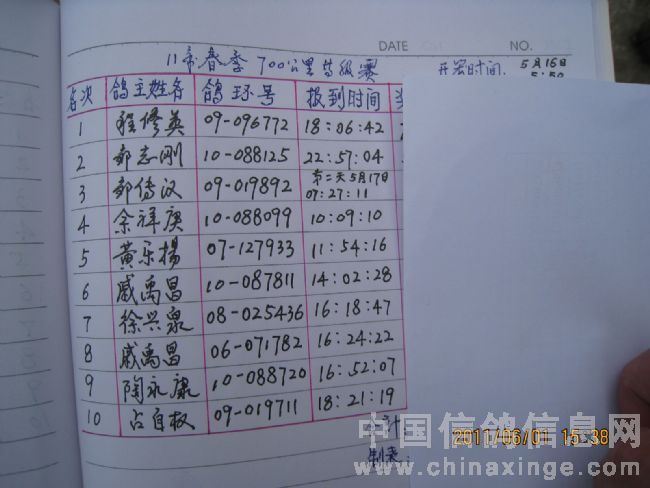 DATE NO.
11年春季 700公里等级赛 开笼时间: 5月16日
5:50
名次 鸽主姓名 鸽环号 报到时间
1 程修英 09-096772 18:06:42
2 郝志刚 10-088125 22:57:04
第二天5月17日
3 09-019892 07:27:11
4 余祥庚 10-088099 10:09:10
5 黄乐扬 07-127933 11:54:16
6 戚禹昌 10-087811 14:02:28
7 徐兴泉 08-025436 16:18:47
8 戚禹昌 06-071782 16:24:22
9 陶永康 10-088720 16:52:07
10 占自权 09-019711 18:21:19
中国信鸽信息网
2011/06/01 15:38
www.chinaxinge.com